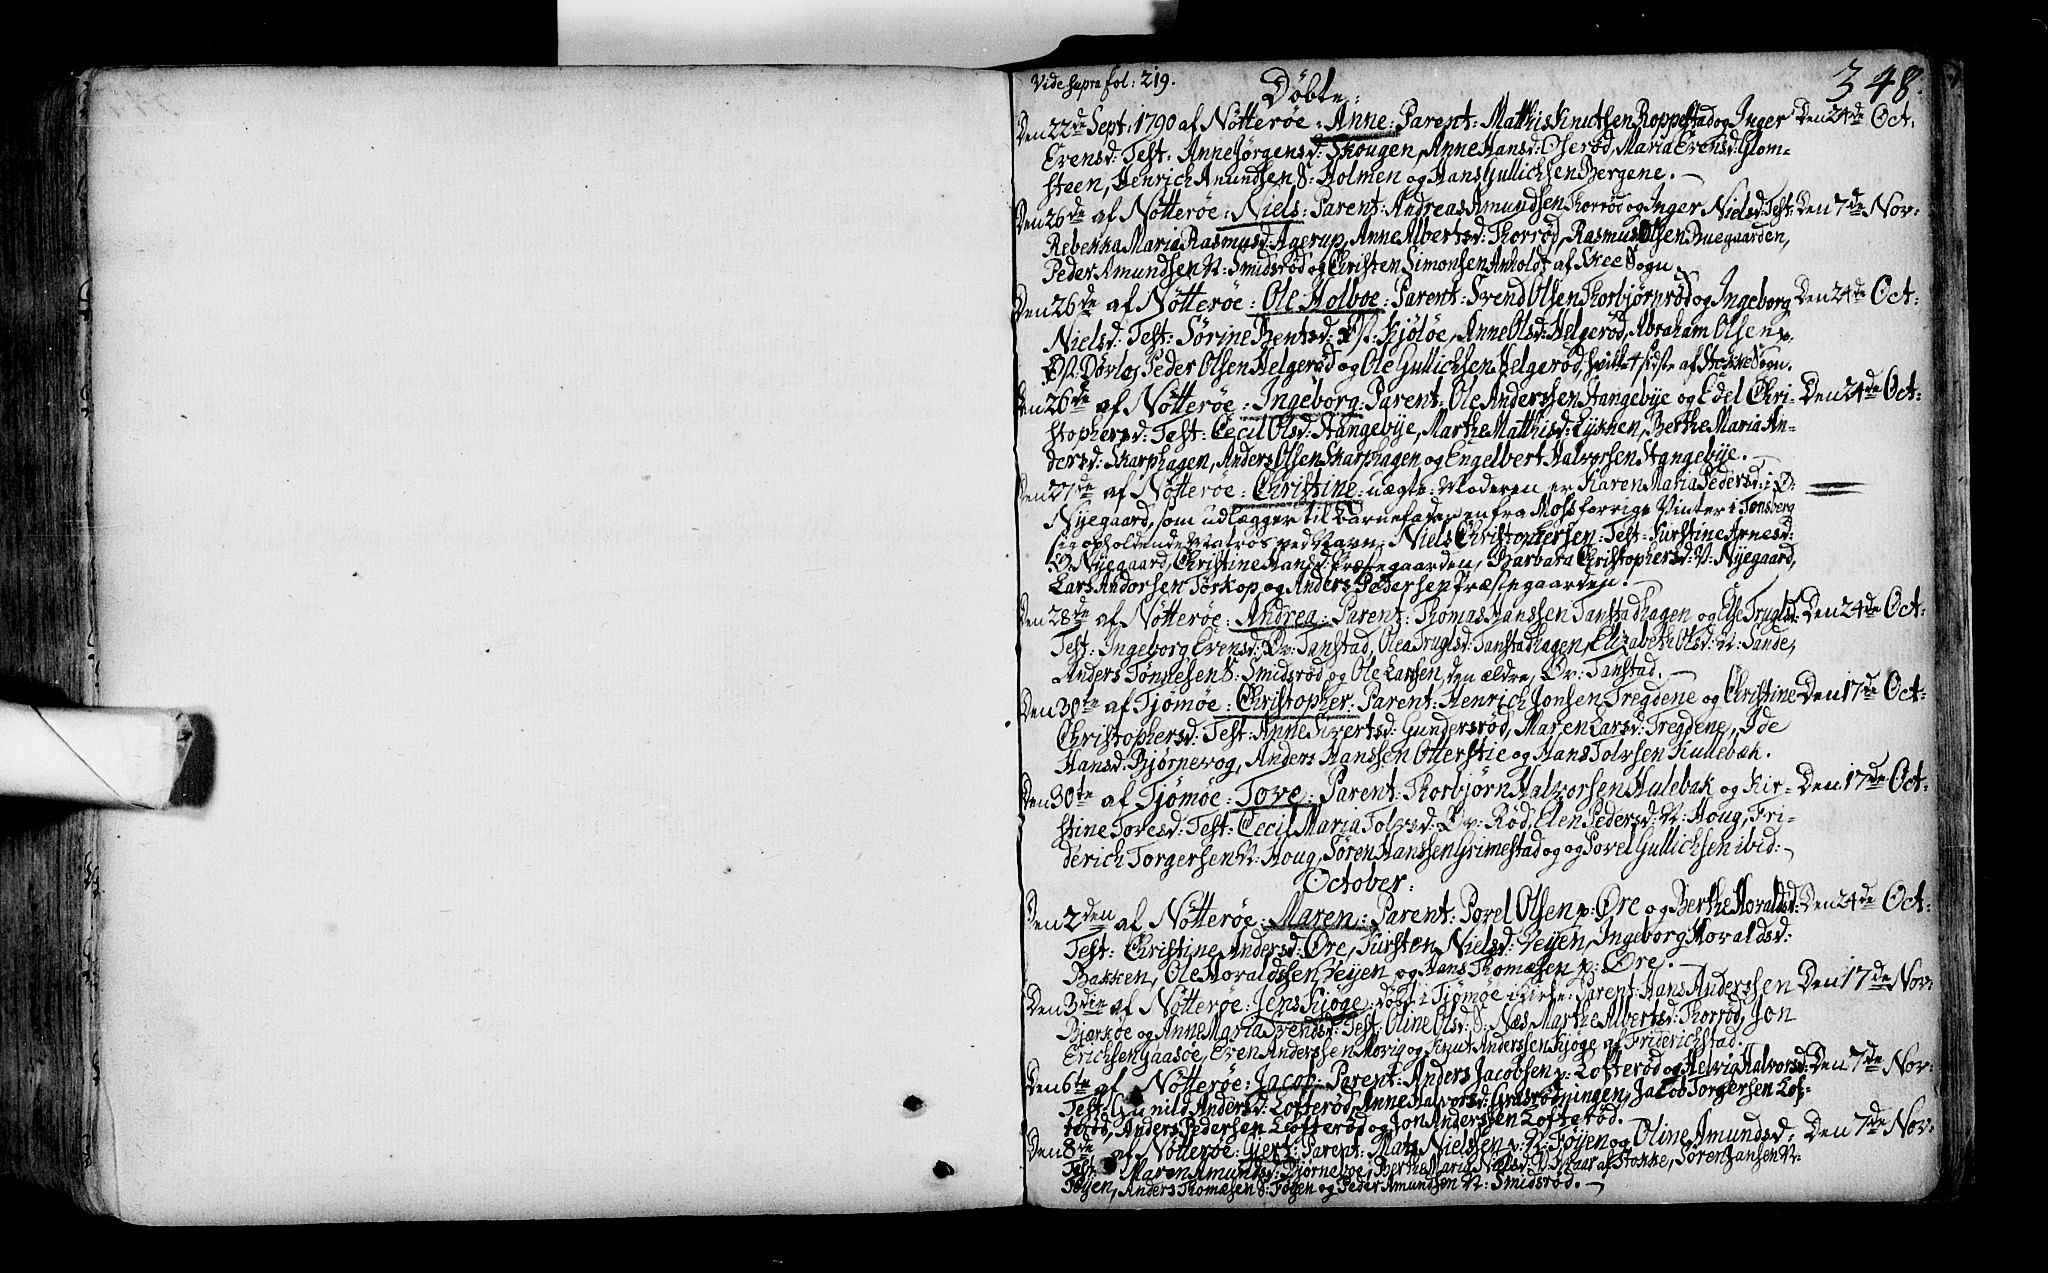 Vide supra fol: 219.
Döbte:
348.
Den 22de Sept: 1790 af Nötterøe: Anne: Parent: Mathis Knutsen Roppestad og Inger Den 24de Oct.
Evensd: Test: Anne Jörgensd: Skougen, Anne Hansd: Oserød, Maria Evensd: Glom-
steen, Henrich Amundsen S: Holmen og Hans Gullichsen Bergene. -
Den 26de af Nötterøe: Niels: Parent: Andreas Amundsen Thorrød og Inger Nielsd: Test: Den 7de Nov:
Rebekka Maria Rasmusd: Agerup, Anne Albertsd: Thorrød, Rasmus Olsen Buegaarden,
Peder Amundsen N: Smidsrød og Christen Simonsen Arholdt af Skee Sogn.
Den 26de af Nötterøe: Ole Holboe: Parent: Svend Olsen Thorbjørnrød og Ingeborg Den 24de Oct:
Nielsd: Test: Sørine Bentsd: Øst: Kjöløe, Anne Olsd: Helgerød, Abraham Olsen p:
Øst: Dørlos Peder Olsen Helgerød og Ole Gullichsen Helgerød, hvilke 4 sidste af Stokke Sogn.
Den 26de af Nötterøe: Ingeborg: Parent: Ole Anderssen Stangebye og Edel Chri- Den 24de Oct:
stophersd: Test: Cecil Olsd: Stangebye, Marthe Matthisd: Lykken, Berthe Maria An-
dersd: Skarphagen, Anders Olsen Skarphagen og Engelbert Halvorsen Stangebye. -
Den 27de af Nötterøe: Christine: uægte: Moderen er Karen Maria Pedersd: i Ø:
Nyegaard, som udlægger til Barnefader en fra Moss forrige Vinter i Tønsberg
sig opholdende Matros ved Navn: Niels Christophersen: Test: Kirstine Arnesd:
Ø: Nyegaard, Christine Hansd: Præstegaarden, Barbara Christophersd: N: Nyegaard,
Lars Andorsen Torkop og Anders Pedersen Præstegaarden. -
Den 28de af Nötterøe: Andrea: Parent: Thomas Hanssen Tanstadhagen og Else Truglsd: Den 24de Oct:
Test: Ingeborg Evensd: Øv: Tanstad, Olea Truglsd: Tanstadhagen, Elizabeth Olsd: N: Sande,
Anders Tønnesen S: Smidsrød og Ole Larssen, den ældre, Øv: Tanstad. -
Den 30te af Tjömøe: Christopher: Parent: Henrich Jonsen Tregdene og Christine Den 17de Oct:
Christophersd: Test: Anne Sivertsd: Gundersrød, Maren Larsd: Tregdene, Ide
Hansd: Bjørnevog, Anders Hanssen Otterstie og Hans Tolvsen Kullebæk.
Den 30te af Tjömøe: Tove: Parent: Thorbjørn Halvorsen Hulebak og Kir- Den 17de Oct:
stine Tovesd: Test: Cecil Maria Tolvsd: Øv: Rød, Elen Pedersd: N: Houg, Fri-
derich Torgersen N: Houg, Søren Hanssen Grimestad og og Povel Gullichsen ibid: -
October:
Den 2den af Nötterøe: Maren: Parent: Povel Olsen p: Øre og Berthe Horaldsd: Den 24de Oct:
Test: Christine Andersd: Øre, Kirsten Nielsd: Veyen, Ingeborg Horaldsd:
Bakken, Ole Horaldssen Veyen og Hans Thomæsen p: Øre. -
Den 3die af Nötterøe: Jens Kjöge: Döbt i Tjömøe Kirke: Parent: Hans Anderssen Den 17de Nov:
Bjerkøe og Anne Maria Svendsd: Test: Oline Olsd: S: Næs, Marthe Albertsd: Thorrød, Jon
Erichsen Gaasøe, Even Anderssen Morig og Knut Anderssen Kjöge af Friderichstad.
Den 6te af Nötterøe: Jacob: Parent: Anders Jacobsen p: Lofterød og Helvig Halvorsd: Den 7de Nov:
Test: Gunild Andersd: Lofterød, Anne Halvorsd: Grasrødningen, Jacob Torgersen Lof-
terød, Anders Pedersen Lofterød og Jon Anderssen Lofterød.
Den 8de af Nötterøe: Giert: Parent: Mats Nielssen p: N: Føyen og Oline Amundsd: Den 7de Nov:
Test: Maren Amundsd: Bjørneboe, Berthe Maria Nielsd: N: Skaar af Stokke, Søren Jansen N:
Føyen, Anders Thomæsen S: Føyen og Peder Amundsen N: Smidsrød. -